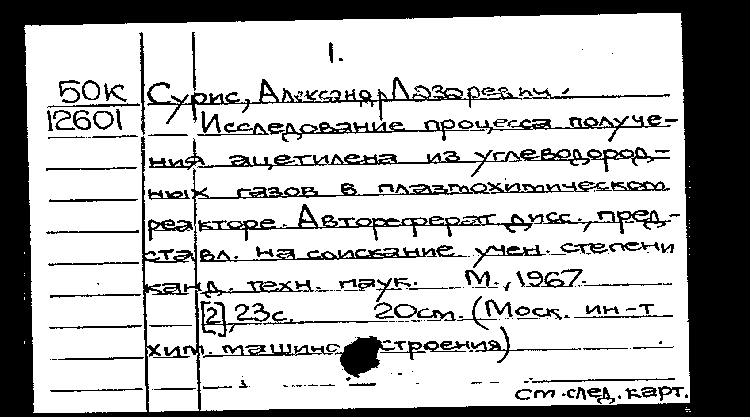 1.
50К Сурис, Александр Лазаревич.
12601 Исследование процесса получе-
ния ацетилена из углеводород-
ных газов в плазмохимическом
реакторе. Автореферат дисс., пред-
ставл. на соискание учен. степени
канд. техн. наук. М., 1967.
[2], 23с. 20см. (Моск. ин-т
хим. машиностроения)
см. след. карт.